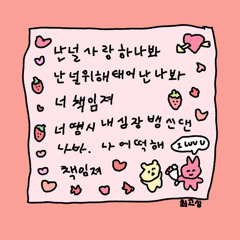 난 널 사랑하나봐
난 널 위해 태어난나봐
너 책임져
너 땜시 내 심장 뱀 쓰댄
나봐. 나 어떡해
책임져
I LUV U
최고심